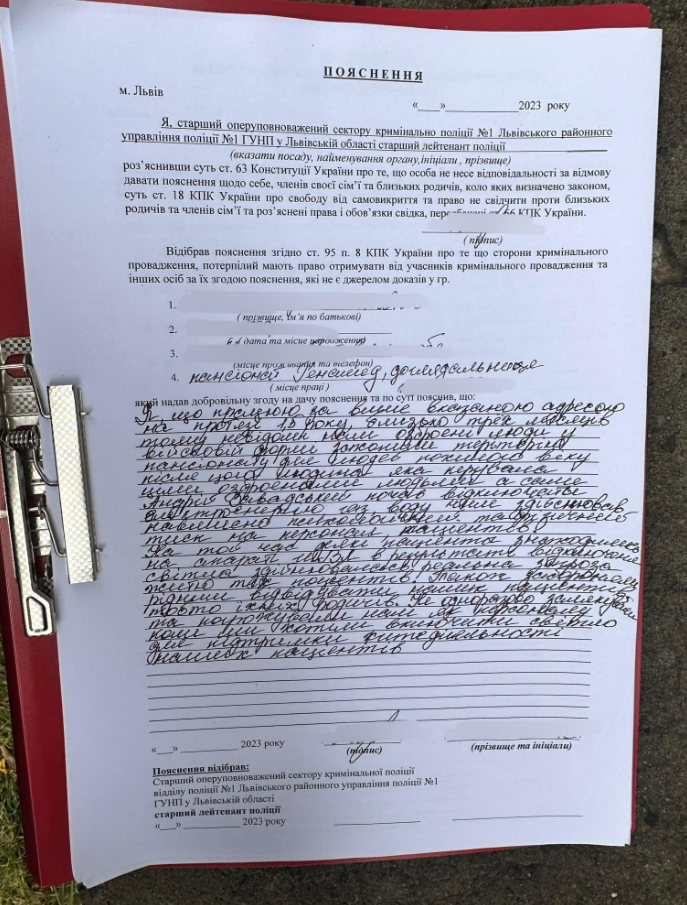 ПОЯСНЕННЯ
м. Львів
«___»____________2023 року
Я, старший оперуповноважений сектору кримінально поліції №1 Львівського районного
управління поліції №1 ГУНП у Львівській області старший лейтенант поліції
(вказати посаду, найменування органу,ініціали , прізвище)
роз’яснивши суть ст. 63 Конституції України про те, що особа не несе відповідальності за відмову
давати пояснення щодо себе, членів своєї сім’ї та близьких родичів, коло яких визначено законом,
суть ст. 18 КПК України про свободу від самовикриття та право не свідчити проти близьких
родичів та членів сім’ї та роз’яснені права і обов’язки свідка, 66 КПК України.
(підпис)
Відібрав пояснення згідно ст. 95 п. 8 КПК України про те що сторони кримінального
провадження, потерпілий мають право отримувати від учасників кримінального провадження та
інших осіб за їх згодою пояснення, які не є джерелом доказів у гр.
1.
( прізвище, ім’я по батькові)
2.
дата та місце народження)
3.
(місце проживання та телефон)
4. пансіонат Геномед, доглядальниця
( місце праці )
який надав добровільну згоду на дачу пояснення та по суті пояснив, що:
Я що працюю за вище вказаною адресою
на протязі 1,5 року, близько трех
тому невідомі нам озброєні люди у
військовій формі захопили територію
пансіонату для людей похилого віку
після цього людина яка керувала
цими озброєними людьми а саме
Андрій Завадський почав відключати
електроенергію газ воду чим здійснював
навмисно психологічний та фізичний
тиск на персонал та пацієнтів
На той час деякі пацієнти знаходились
на апараті ШВЛ в результаті відключення
світла реальна загроза
життю тих пацієнтів. Також забороняли
рідним відвідувати наших пацієнтів
тобто їхніх родичів. Й одноразово залякували
та погрожували нам як персоналу
коли ми хотіли включити світло
для підтримки життєдіяльності
наших пацієнтів
«___» ____________ 2023 року
(підпис)
(прізвище та ініціали)
Пояснення відібрав:
Старший оперуповноважений сектору кримінальної поліції
відділу поліції №1 Львівського районного управління поліції №1
ГУНП у Львівській області
старший лейтенант поліції
«___» ____________ 2023 року